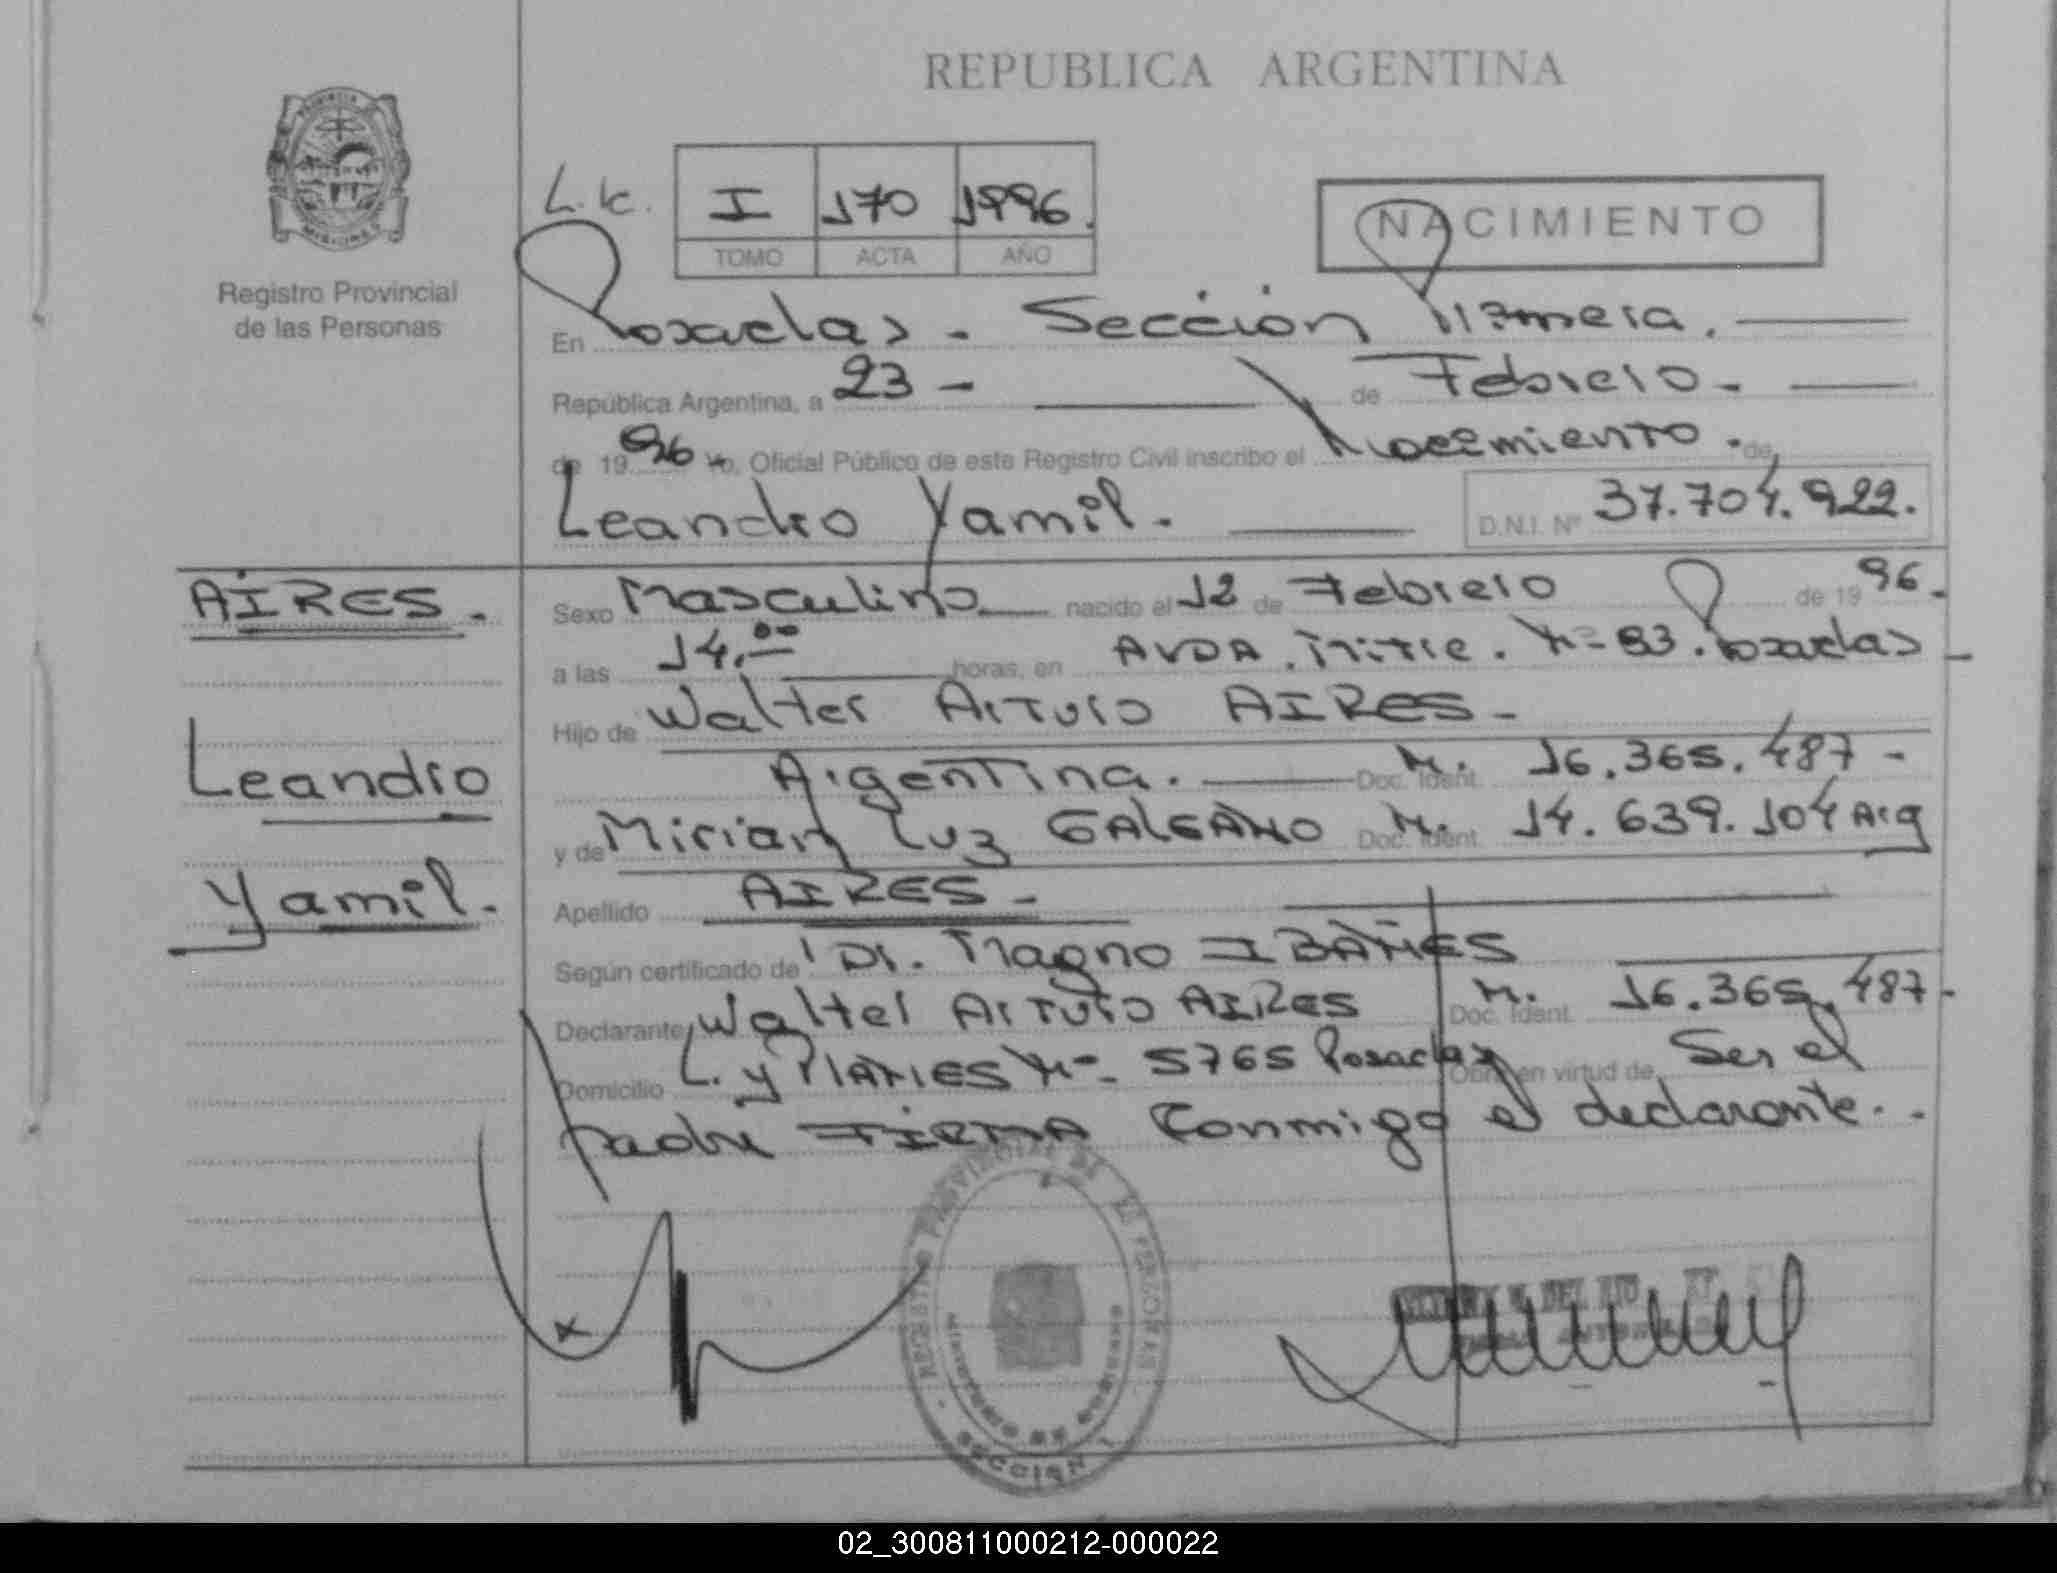 REPUBLICA ARGENTINA
PROVINCIA
MISIONES
Registro Provincial
de las Personas
I 170 1996.
TOMO ACTA AÑO
NACIMIENTO
En Posadas - Sección Primera.
República Argentina, a 23 - de Febrero -
de 1996 Yo, Oficial Público de este Registro Civil inscribo el Nacimiento. de
Leandro Yamil. D.N.I. Nº 37.704.922.
AIRES.
Sexo Masculino nacido el 12 de Febrero de 1996.
a las 14,00 horas, en AVDA. Mitre. Nº 83. Posadas
Hijo de Walter Arturo AIRES -
Leandro
Argentina. Doc. Ident. M. 16.365.487 -
y de Mirian Luz GALEANO Doc. Ident. M. 14.639.104 Arg
Yamil.
Apellido AIRES -
Según certificado de Dr. Magno IBAÑES
Declarante Walter Arturo AIRES Doc. Ident. M. 16.365.487 -
Domicilio L. y PLANES Nº 5765 Posadas Obra en virtud de Ser el
padre FIRMA Conmigo el declarante.
REGISTRO PROVINCIAL DE LAS PERSONAS
MINISTERIO DE GOBIERNO
SECCION 1
02_300811000212-000022